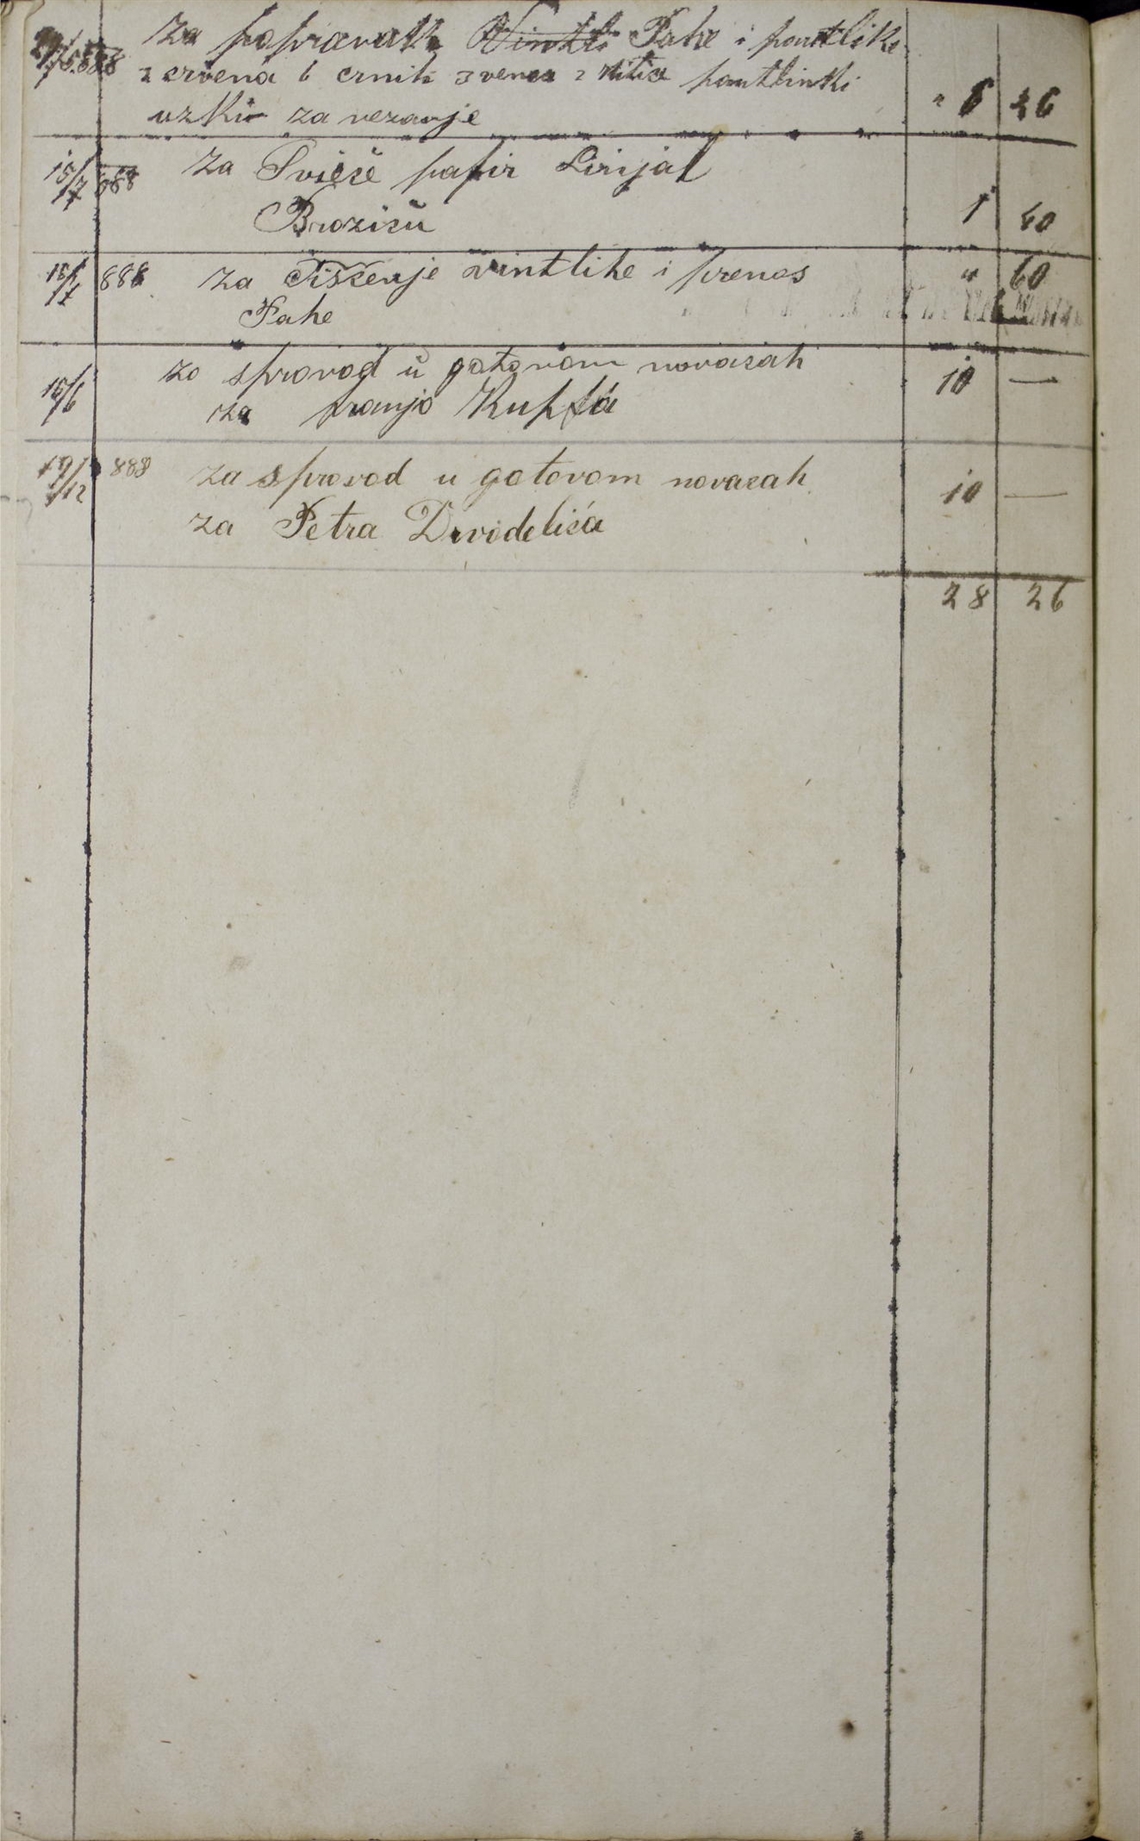 za popravak Vinkli Pahe i pantlike
888 2 crvena 6 crnih 3 venca 2 kitice pantlinki
uzki za vezanje " 6 26
15/7 888 za Svieće papir Linijal
Broziću 1 40
15/7 888 za Tišćenje vintlike i prenes " 60
Pahe
15/6 za sprovod u gotovom novacah 10 —
za franjo Kupfa
19/12 888 za sprovod u gotovom novacah 10 —
za Petra Drvodelića
28 26